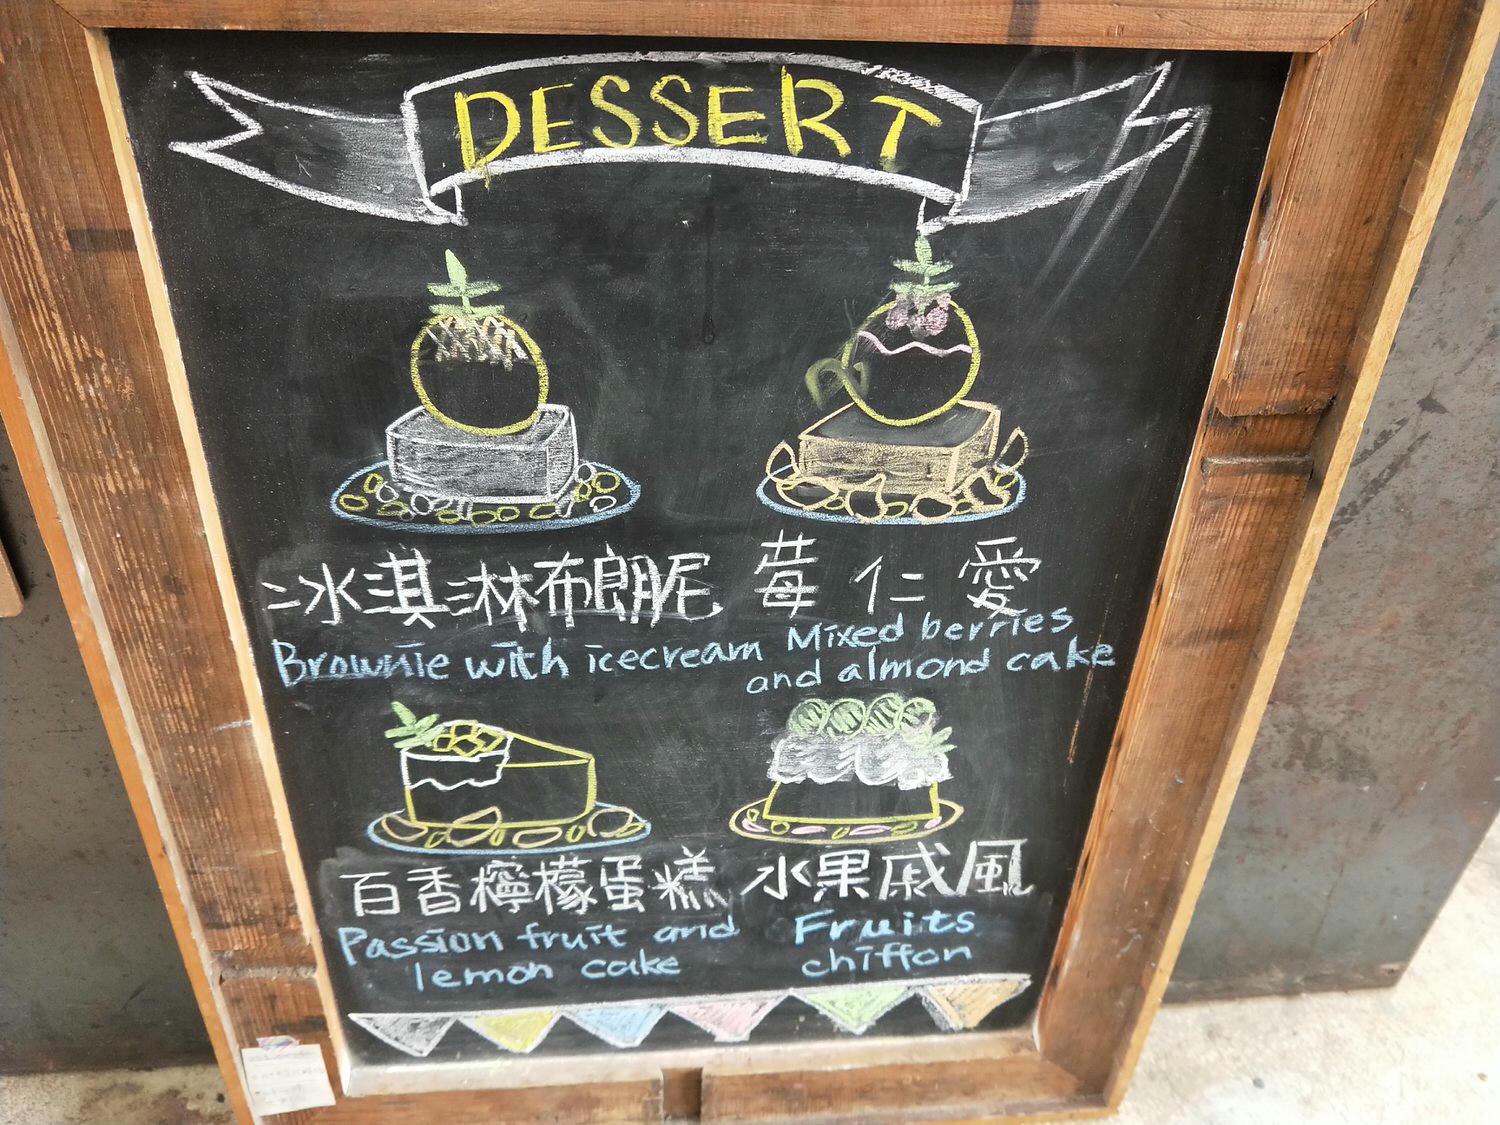 DESSERT
冰淇淋布朗尼
Brownie with icecream
莓仁愛
Mixed berries
and almond cake
百香檸檬蛋糕
Passion fruit and
lemon cake
水果戚風
Fruits
chiffon